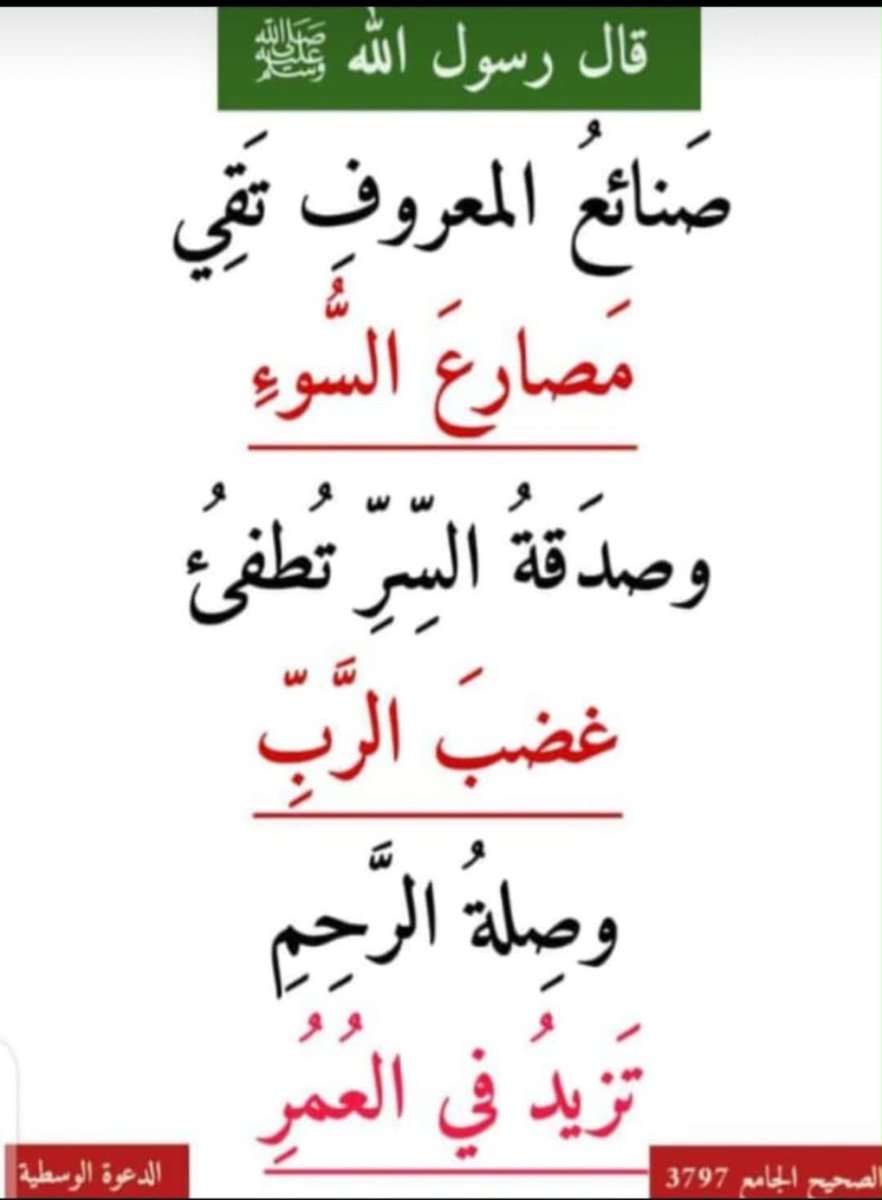 قال رسول الله ﷺ
صَنائعُ المعروفِ تَقِي
مَصارعَ السُّوءِ
وصدَقةُ السِّرِّ تُطفئُ
غضبَ الرَّبِّ
وصِلةُ الرَّحِمِ
تَزيدُ في العُمُرِ
الصحيح الجامع 3797
الدعوة الوسطية